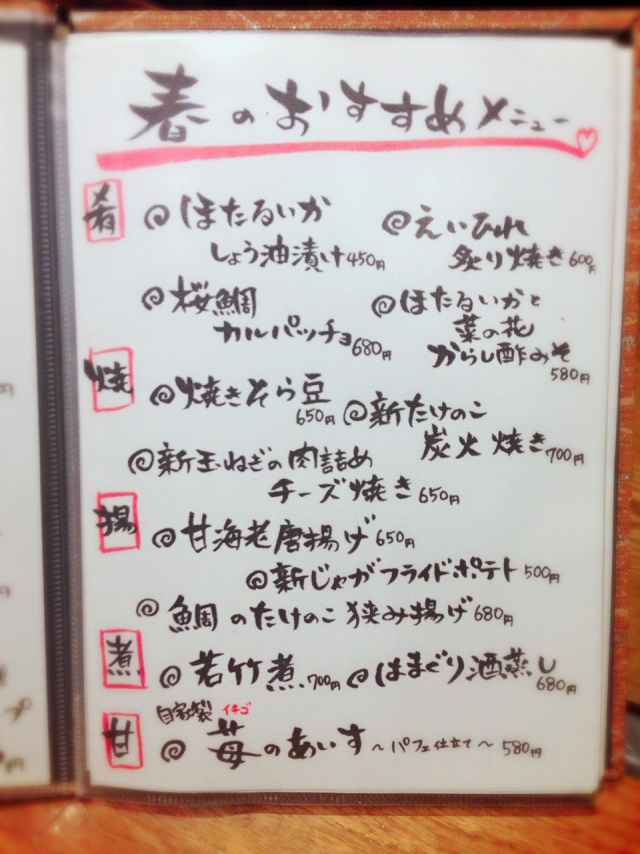 春のおすすめメニュー
肴
ほたるいか
しょう油漬け450円
えいひれ
炙り焼き600円
桜鯛
カルパッチョ680円
ほたるいかと
菜の花
がらし酢みそ
580円
焼
焼きそら豆
650円
新たけのこ
炭火焼き700円
新玉ねぎの肉詰め
チーズ焼き650円
揚
甘海老唐揚げ650円
新じゃがフライドポテト500円
鯛のたけのこ挟み揚げ680円
煮
若竹煮700円
はまぐり酒蒸し
680円
甘
自家製
イチゴ
苺のあいす～パフェ仕立て～580円
プ
円